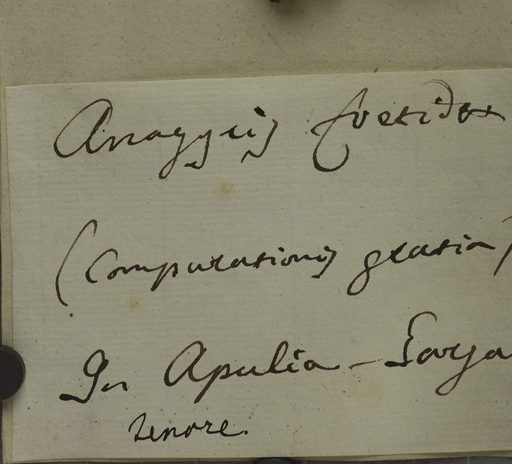 Anagyris foetidus
(Comparationis gratia)
In Apulia - Garga
Tenore.